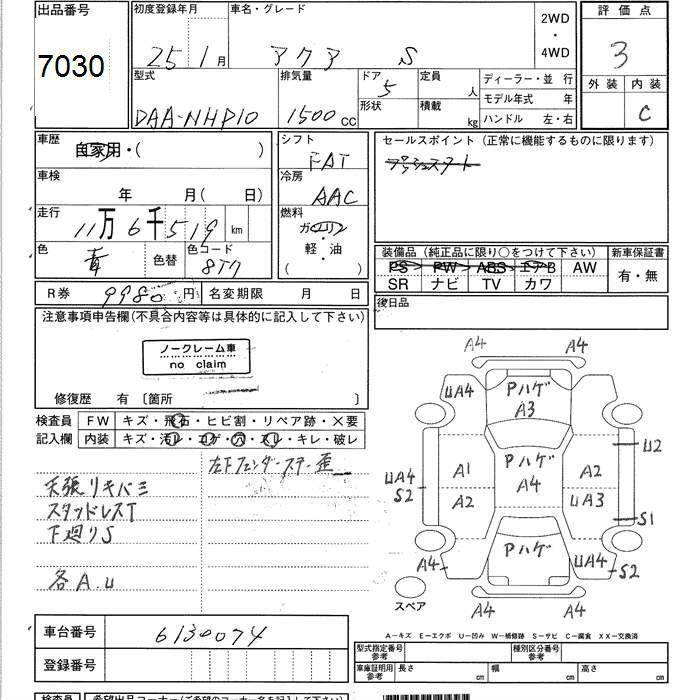 出品番号 初度登録年月 車名・グレード 2WD ・ 4WD 評価点
7030 25 1月 アクア S 3
型式 排気量 ドア 5 定員 人 ディーラー・並 行 外装 内装
形状 積載 kg モデル年式 年
DAA-NHP10 1500cc ハンドル 左・右 C
車歴 自家用・( ) シフト FAT セールスポイント (正常に機能するものに限ります)
プッシュスタート
車検 年 月( 日) 冷房 AAC
走行 11万6千519km 燃料 ガソリン ・ 軽・油 ( )
色 青 色替 色コード 8T7
装備品 (純正品に限り○をつけて下さい) 新車保証書
PS PW ABS エアB AW 有・無
SR ナビ TV カワ
R券 9980円 名変期限 月 日 後日品
注意事項申告欄(不具合内容等は具体的に記入して下さい)
ノークレーム車
no claim
修復歴 有 〔箇所 〕
検査員 FW キズ・飛石・ヒビ割・リペア跡・×要
記入欄 内装 キズ・汚レ・コゲ・穴・スレ・キレ・破レ
左下フェンダーステー歪
天張リキバミ
スタッドレスT
下廻りS
各A.U
A4 A4
UA4 Pハゲ A3
U2
A1 Pハゲ A4 A2
UA4 S2
A2 UA3
S1
Pハゲ
A4 UA4 S2
スペア A4 A4
車台番号 6130074
登録番号
A-キズ E-エクボ U-凹み W-補修跡 S-サビ C-腐食 XX-交換済
型式指定番号 参考 種別区分番号 参考
車庫証明用 参考 長さ cm 幅 cm 高さ cm